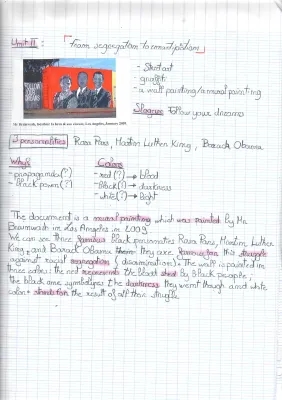 Unit II :
"From segregation to emancipation"
- Streetart
- graffiti
- a wall painting / a mural painting
Slogan: Follow your dreams
FOLLOW YOUR DREAMS
Mr Brainwash, brother to brink & see excess, Los Angeles, January 2009.
3 personnalities Rosa Pars, Martin Luther King, Barack Obama
Why? Colors
- propaganda (?) - red (?) → blood
- Black power (?) - black (?) → darkness
- white (?) → light
The document is a mural painting which was painted by Mr
Brainwash in Los Angeles in 2009.
We can see three famous black personnalities Rosa Pars, Martin Luther
King, and Barack Obama they are famous for this struggle
against racial segregation (discriminations). The wall is painted in
three colors: the red represents the blood shed by Black people,
the black one symbolizes the darkness they went though and white
color the result of all this struggle